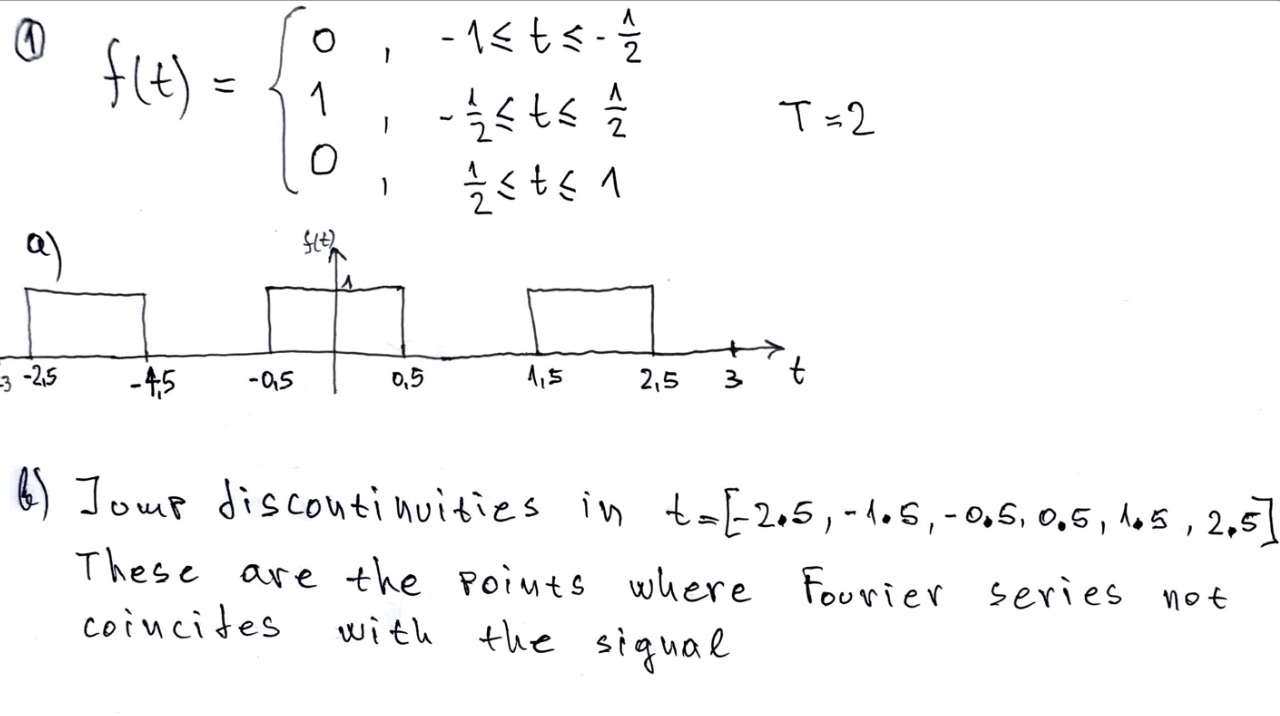 ① f(t) = { 0 , -1 ≤ t ≤ -1/2
1 , -1/2 ≤ t ≤ 1/2
0 , 1/2 ≤ t ≤ 1
T = 2
a)
f(t)
1
-3 -2,5 -1,5 -0,5 0,5 1,5 2,5 3 t
b) Jomp discontinuities in t=[-2.5, -1.5, -0.5, 0.5, 1.5, 2.5]
These are the points where Fourier series not
coincites with the signal